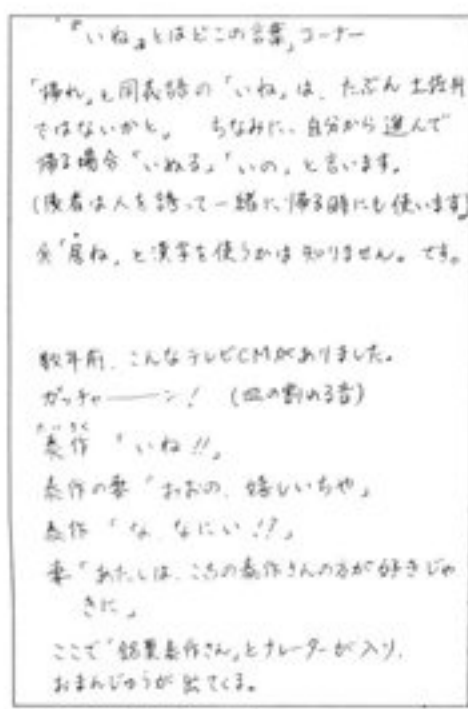 「『いね』とはどこの言葉」コーナー
「帰れ」と同義語の「いね」は、たぶん土佐弁
ではないかと。 ちなみに、自分から選んで
帰る場合「いぬる」「いの」と言います。
(後者は人を誘って一緒に帰る時にも使います)
「尾ね」と漢字を使うかは知りません。です。
数年前、こんなテレビCMがありました。
ガッチャーーン! (皿の割れる音)
作「いね!!」
作の妻「おおの、嬉しいちや」
作「な、なにい!?」
妻「あたしは、こちの作さんの方が好きじゃ
きに」
ここで「銘菓作さん」とナレーターが入り、
おまんじゅうが出てくる。